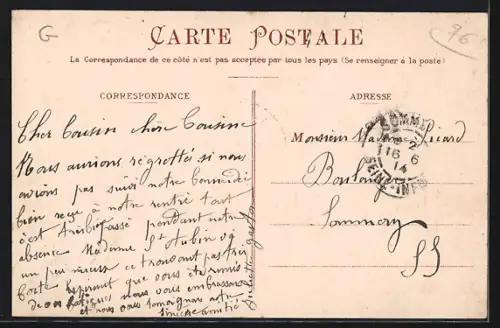 G
96
CARTE POSTALE
La Correspondance de ce côté n'est pas acceptée par tous les pays (Se renseigner à la poste)
CORRESPONDANCE
Cher Cousin chère Cousine
Nous aurions régrettés si nous
avions pas suivi notre
bien reçu à notre rentré tout
c'est passé pendant notre
absence Madame St Aubin va
un peu mieux ce trouvant pas très
forte Esperant que vous êtes remis
de nous vous embrassons
et nous vous temoignons notre
sincère amitié
Juliette Gaston
ADRESSE
Monsieur Madame Picard
Boulang
Sommery
SI
SOMME
16 6
14
SEINE-INFRE